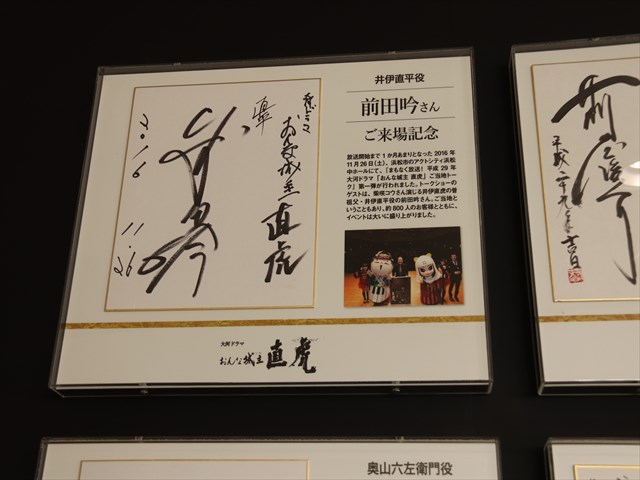 井伊直平役
前田吟さん
ご来場記念
放送開始まで1か月あまりとなった2016年
11月26日(土)、浜松市のアクトシティ浜松
中ホールにて、「まもなく放送!平成29年
大河ドラマ「おんな城主 直虎」ご当地トー
ク」第一弾が行われました。トークショーの
ゲストは、柴咲コウさん演じる井伊直虎の曽
祖父・井伊直平役の前田吟さん。ご当地と
いうこともあり、約800人のお客様とともに、
イベントは大いに盛り上がりました。
大河ドラマ
おんな城主 直虎
2016
11.26
大河ドラマ
おんな城主 直虎
奥山六左衛門役